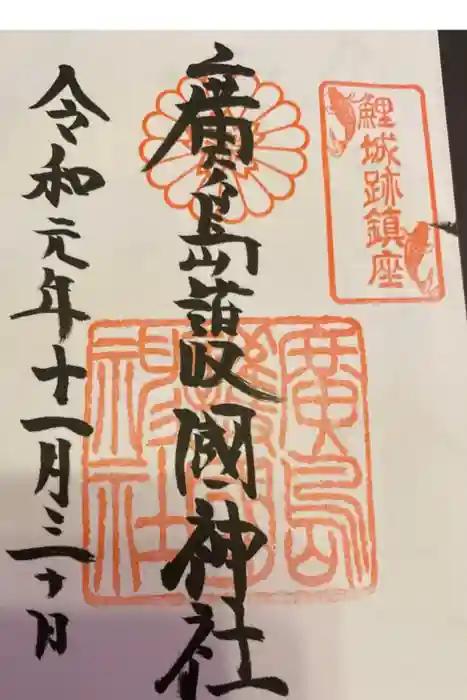 鯉城跡鎮座
廣島護國神社
廣島
護國
神社
令和元年十一月三十日